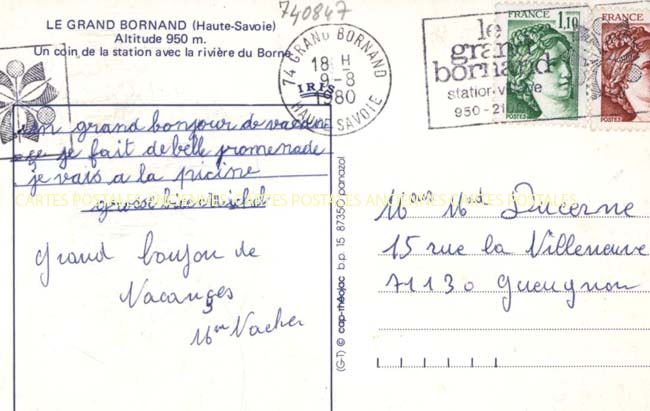 740847
LE GRAND BORNAND (Haute-Savoie)
Altitude 950 m.
Un coin de la station avec la rivière du Borne
IRIS
74 GRAND BORNAND
18 H
9-8
1980
HAUTE SAVOIE
le
grand
bornand
station
950-21
FRANCE
1,10
POSTES
FRANCE
POSTES
un grand bonjour de vacan
ce je fait de belle promenade
je vais a la picine
grosse bise
CARTES POSTALES ANCIENNES CARTES POSTALES ANCIENNES CARTES POSTALES
Grand boujou de
Vacances
Mme Vacher
(G-1) © cap-théojac b.p. 15 87350 panazol
Ducerne
15 rue la Villeneuve
71130 Gueugnon